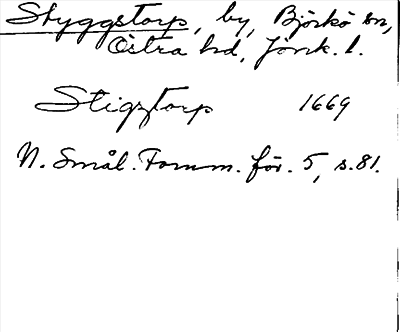 Styggstorp, by, Björkö sn,
Östra hd, Jönk. l.
Stigztorp 1669
N. Smål. Fornm. för. 5, s. 81.